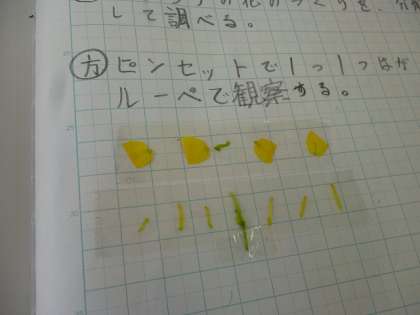 の花のつくりを、分解
して調べる。
方 ピンセットで1つ1つはが
ルーペで観察する。